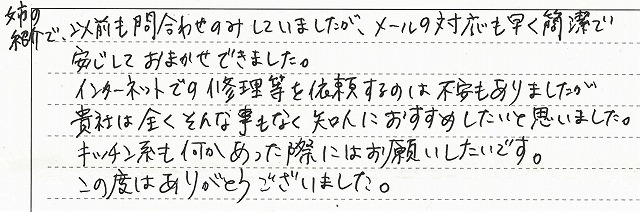 姉の
紹介で、以前も問合わせのみしていましたが、メールの対応も早く簡潔で
安心しておまかせできました。
インターネットでの修理等を依頼するのは不安もありましたが
貴社は全くそんな事もなく知人におすすめしたいと思いました。
キッチン系も何かあった際にはお願いしたいです。
この度はありがとうございました。